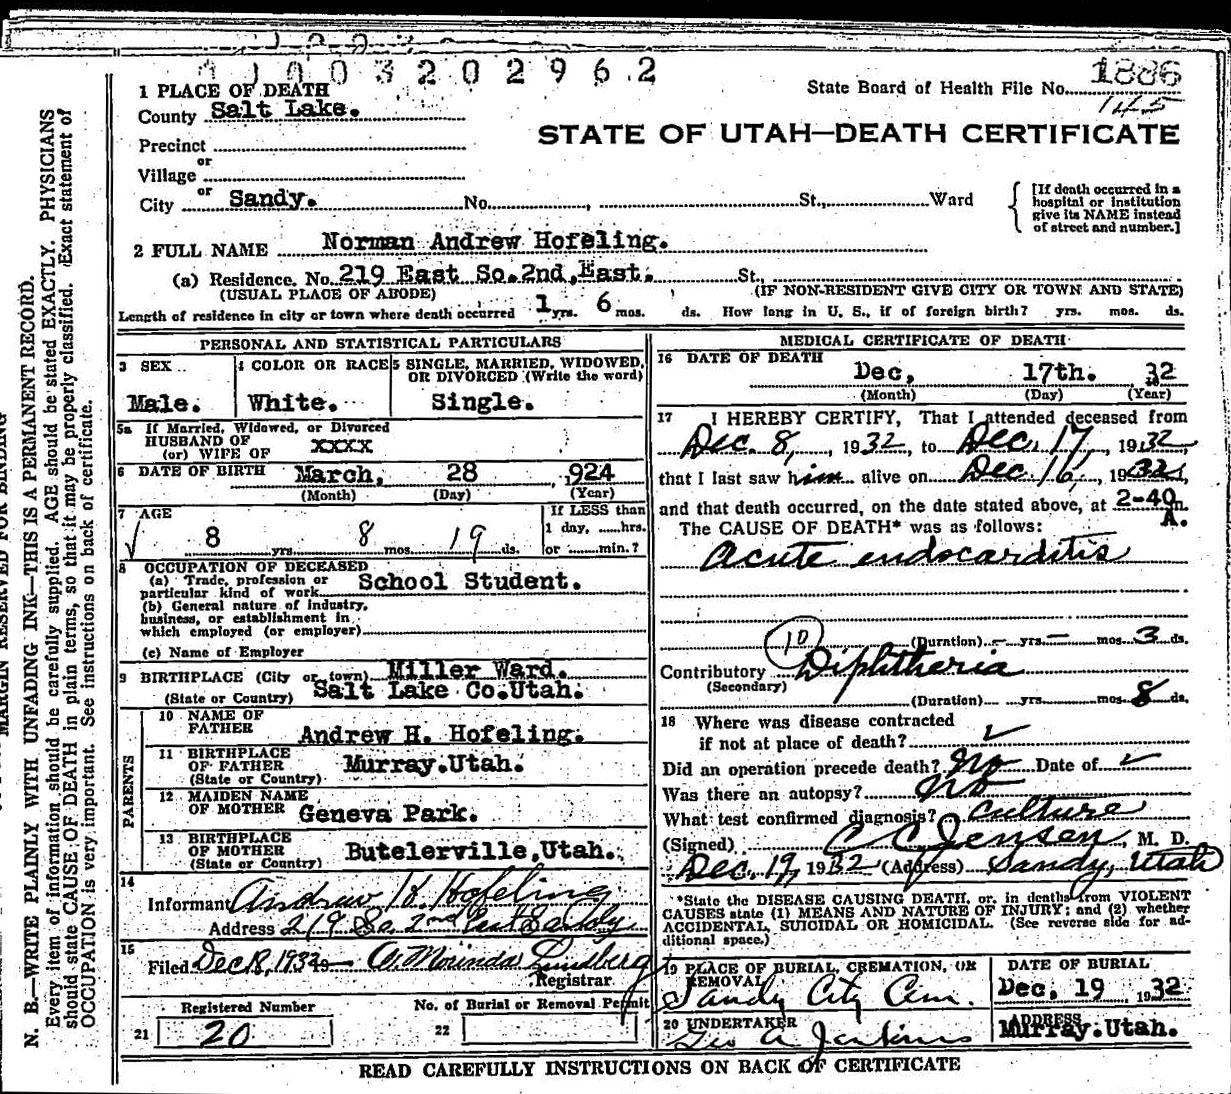 01003202962
1886
1 PLACE OF DEATH
State Board of Health File No.
145
County Salt Lake.
STATE OF UTAH—DEATH CERTIFICATE
Precinct
or
Village
or
City Sandy. No. , St., Ward
[If death occurred in a
hospital or institution
give its NAME instead
of street and number.]
2 FULL NAME Norman Andrew Hofeling.
(a) Residence. No. 219 East So. 2nd, East. St.,
(USUAL PLACE OF ABODE) (IF NON-RESIDENT GIVE CITY OR TOWN AND STATE)
Length of residence in city or town where death occurred 1 yrs. 6 mos. ds. How long in U. S., if of foreign birth? yrs. mos. ds.
PERSONAL AND STATISTICAL PARTICULARS
3 SEX
Male.
4 COLOR OR RACE
White.
5 SINGLE, MARRIED, WIDOWED,
OR DIVORCED (Write the word)
Single.
5a If Married, Widowed, or Divorced
HUSBAND OF
(or) WIFE OF XXXX
6 DATE OF BIRTH March, 28 , 924
(Month) (Day) (Year)
7 AGE
8 yrs. 8 mos. 19 ds.
If LESS than
1 day, ......hrs.
or ........min.?
8 OCCUPATION OF DECEASED
(a) Trade, profession or
particular kind of work School Student.
(b) General nature of industry,
business, or establishment in
which employed (or employer)
(c) Name of Employer
9 BIRTHPLACE (City or town) Miller Ward.
(State or Country) Salt Lake Co. Utah.
PARENTS
10 NAME OF
FATHER Andrew H. Hofeling.
11 BIRTHPLACE
OF FATHER Murray. Utah.
(State or Country)
12 MAIDEN NAME
OF MOTHER Geneva Park.
13 BIRTHPLACE
OF MOTHER Butelerville, Utah.
(State or Country)
14
Informant Andrew H. Hofeling
Address 219 So 2nd East Sandy
15
Filed Dec 18, 1932 A. Morinda Lundberg
Registrar
Registered Number
21 20
No. of Burial or Removal Permit
22
MEDICAL CERTIFICATE OF DEATH
16 DATE OF DEATH
Dec, 17th. 32
(Month) (Day) (Year)
17 I HEREBY CERTIFY, That I attended deceased from
Dec. 8, , 1932, to Dec. 17, , 1932,
that I last saw him alive on Dec. 16, , 1932,
and that death occurred, on the date stated above, at 2-40 m.
A.
The CAUSE OF DEATH* was as follows:
Acute endocarditis
10
(Duration) — yrs. — mos. 3 ds.
Contributory Diphtheria
(Secondary)
(Duration) yrs. mos. 8 ds.
18 Where was disease contracted
if not at place of death?
Did an operation precede death? No Date of
Was there an autopsy? no
What test confirmed diagnosis? culture
(Signed) C C Jensen, M. D.
Dec. 19, 1932 (Address) Sandy, Utah
*State the DISEASE CAUSING DEATH, or, in deaths from VIOLENT
CAUSES state (1) MEANS AND NATURE OF INJURY; and (2) whether
ACCIDENTAL, SUICIDAL OR HOMICIDAL. (See reverse side for ad-
ditional space.)
19 PLACE OF BURIAL, CREMATION, OR
REMOVAL
Sandy City Cem.
DATE OF BURIAL
Dec, 19 1932
20 UNDERTAKER
Geo A Jenkins
ADDRESS
Murray. Utah.
READ CAREFULLY INSTRUCTIONS ON BACK OF CERTIFICATE
MARGIN RESERVED FOR BINDING
N. B.—WRITE PLAINLY WITH UNFADING INK—THIS IS A PERMANENT RECORD.
Every item of information should be carefully supplied. AGE should be stated EXACTLY. PHYSICIANS
should state CAUSE OF DEATH in plain terms, so that it may be properly classified. Exact statement of
OCCUPATION is very important. See instructions on back of certificate.